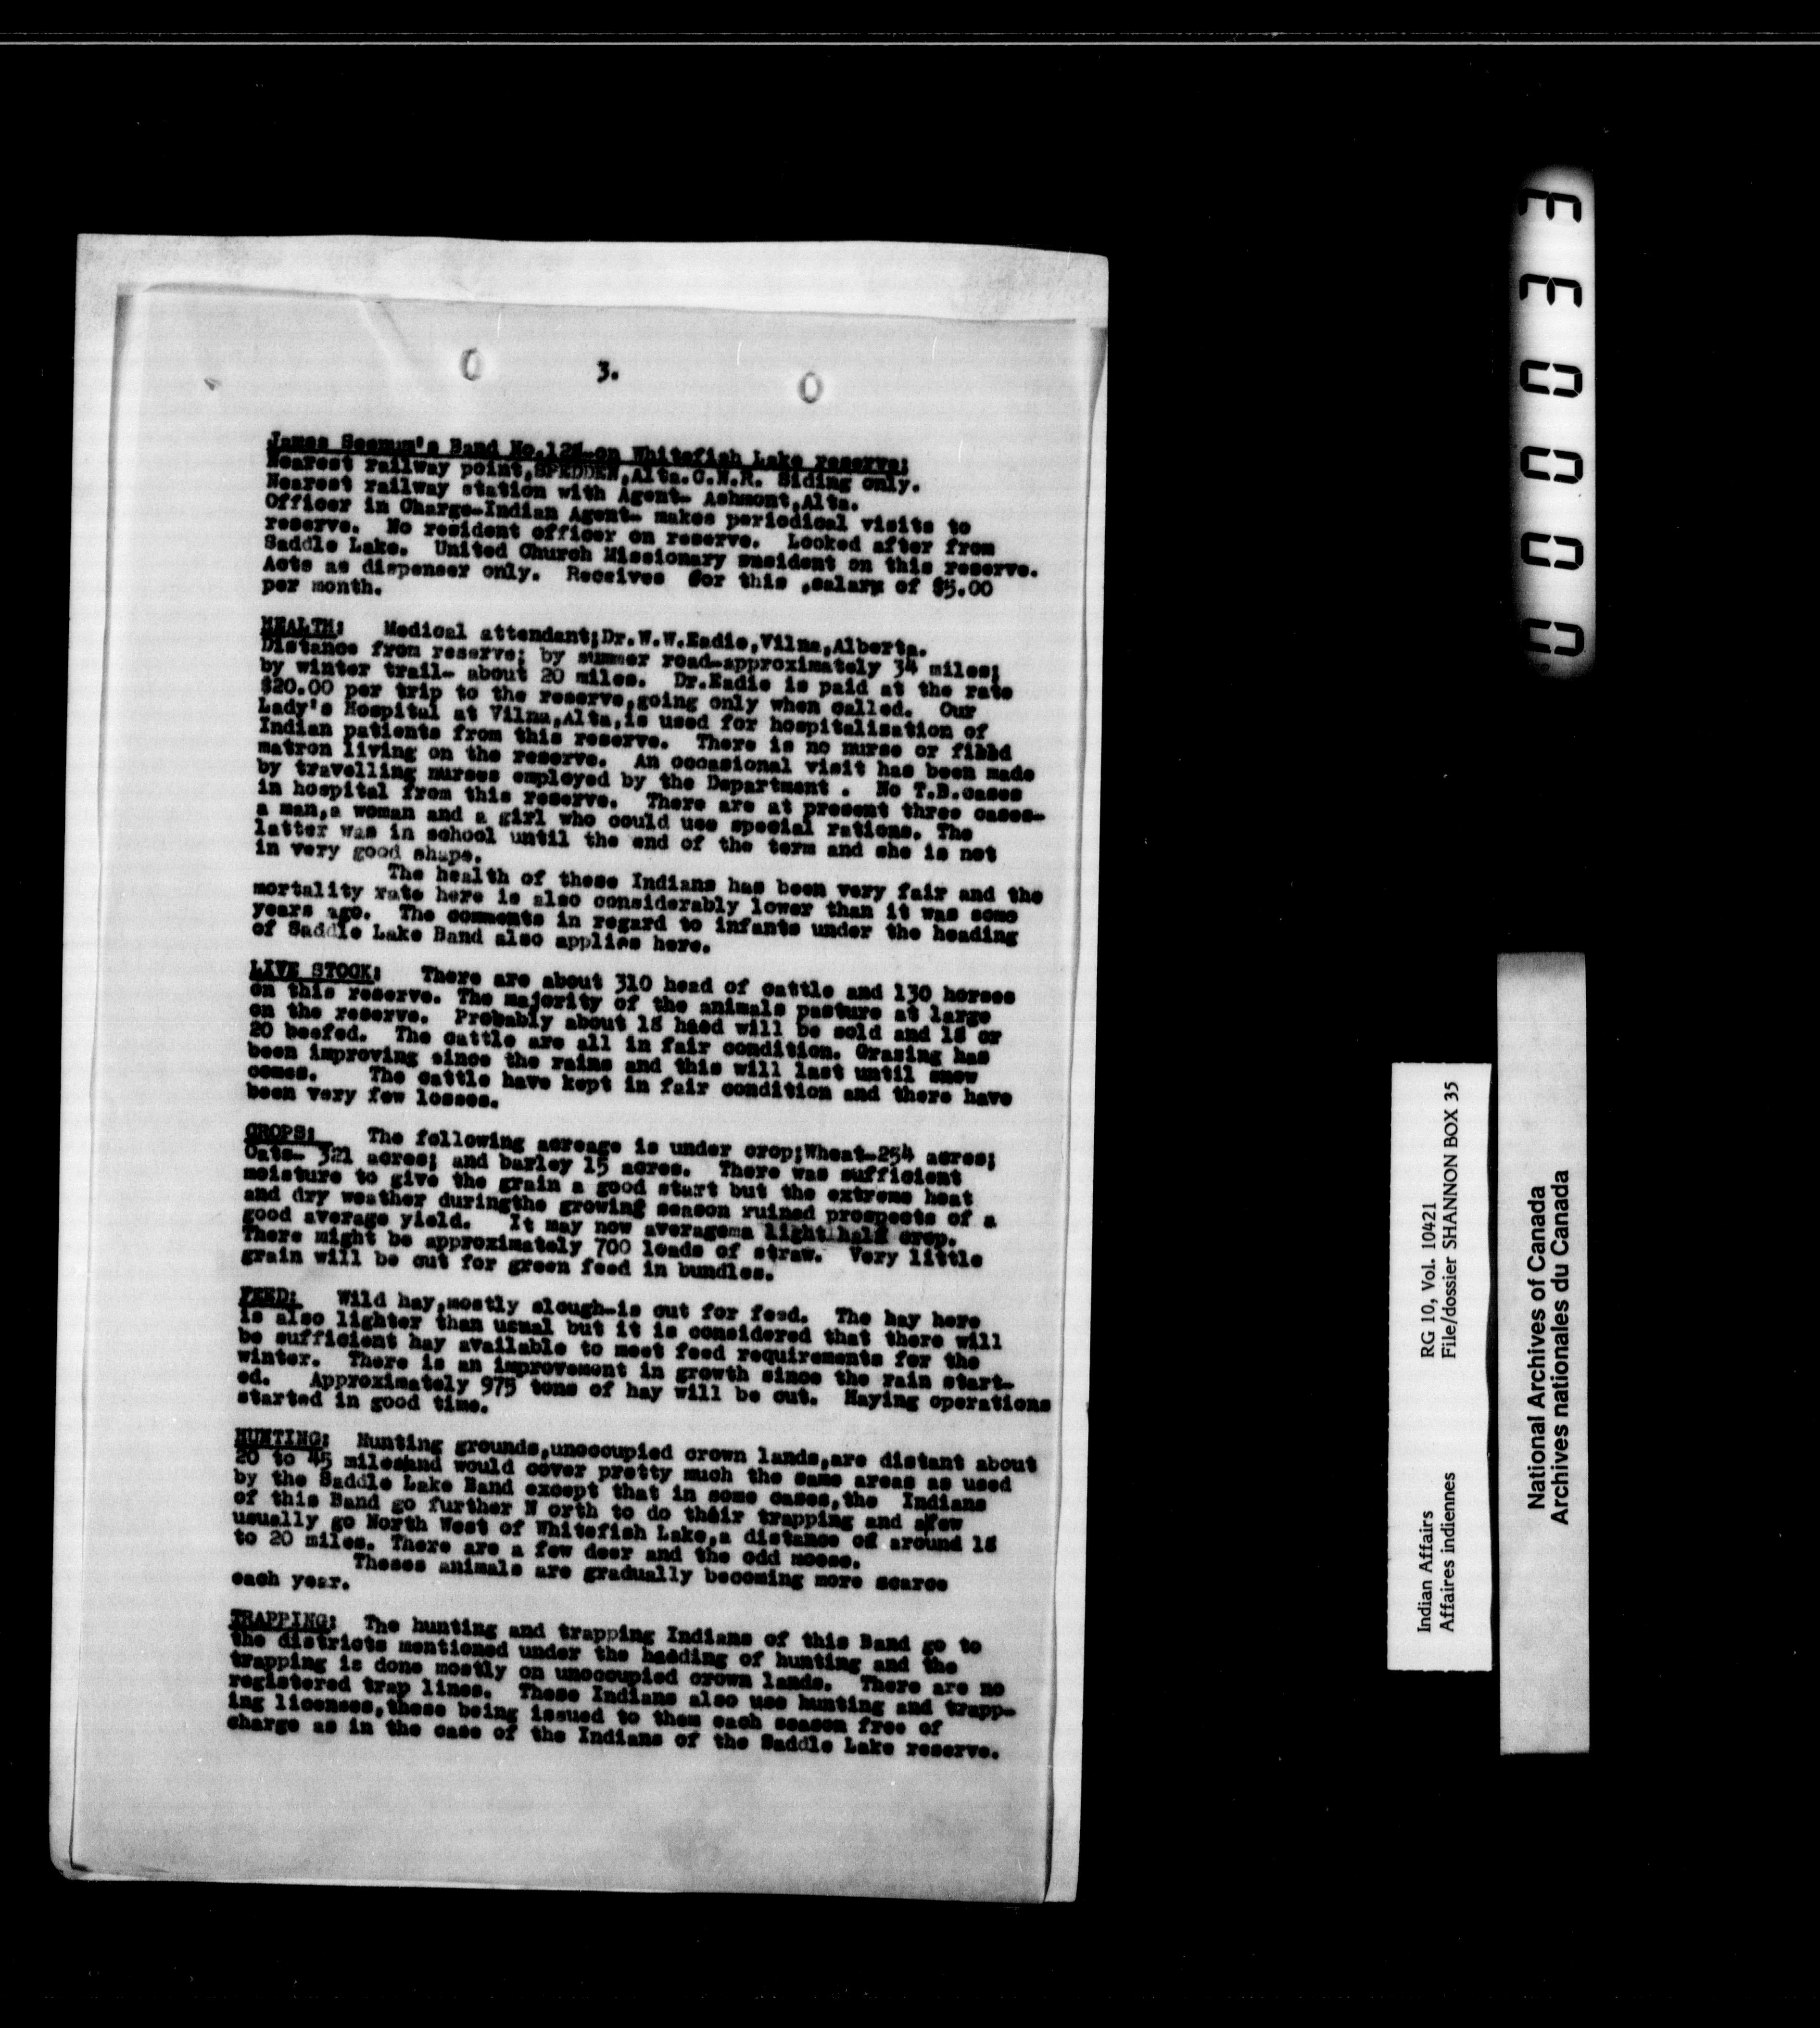 3.
James Seenum's Band No.128-on Whitefish Lake reserve;
Nearest railway point,SPEDDEN,Alta.C.N.R. Siding only.
Nearest railway station with Agent- Ashmont,Alta.
Officer in Charge-Indian Agent- makes periodical visits to
reserve. No resident officer on reserve. Looked after from
Saddle Lake. United Church Missionary resident on this reserve.
Acts as dispenser only. Receives for this ,salary of $5.00
per month.
HEALTH: Medical attendant;Dr.W.W.Eadie,Vilna,Alberta.
Distance from reserve; by summer road-approximately 34 miles;
by winter trail- about 20 miles. Dr.Eadie is paid at the rate
$20.00 per trip to the reserve,going only when called. Our
Lady's Hospital at Vilna,Alta,is used for hospitalisation of
Indian patients from this reserve. There is no nurse or
matron living on the reserve. An occasional visit has been made
by travelling nurses employed by the Department . No T.B.cases
in hospital from this reserve. There are at present three cases-
a man,a woman and a girl who could use special rations. The
latter was in school until the end of the term and she is not
in very good shape.
The health of these Indians has been very fair and the
mortality rate here is also considerably lower than it was some
years ago. The comments in regard to infants under the heading
of Saddle Lake Band also applies here.
LIVE STOCK: There are about 310 head of cattle and 130 horses
on this reserve. The majority of the animals pasture at large
on the reserve. Probably about 18 haed will be sold and 18 or
20 beefed. The cattle are all in fair condition. Grazing has
been improving since the rains and this will last until snow
comes. The cattle have kept in fair condition and there have
been very few losses.
CROPS: The following acreage is under crop;Wheat-254 acres;
Oats- 321 acres; and barley 15 acres. There was sufficient
moisture to give the grain a good start but the extreme heat
and dry weather duringthe growing season ruined prospects of a
good average yield. It may now average a light half crop.
There might be approximately 700 loads of straw. Very little
grain will be cut for green feed in bundles.
FEED: Wild hay,mostly slough-is cut for feed. The hay here
is also lighter than usual but it is considered that there will
be sufficient hay available to meet feed requirements for the
winter. There is an improvement in growth since the rain start-
ed. Approximately 975 tons of hay will be cut. Haying operations
started in good time.
HUNTING: Hunting grounds,unoccupied crown lands,are distant about
20 to 45 miles and would cover pretty much the same areas as used
by the Saddle Lake Band except that in some cases,the Indians
of this Band go further N orth to do their trapping and a few
usually go North West of Whitefish Lake,a distance of around 18
to 20 miles. There are a few deer and the odd moose.
Theses animals are gradually becoming more scarce
each year.
TRAPPING: The hunting and trapping Indians of this Band go to
the districts mentioned under the haeding of hunting and the
trapping is done mostly on unoccupied crown lands. There are no
registered trap lines. These Indians also use hunting and trapp-
ing licenses,these being issued to them each season free of
charge as in the case of the Indians of the Saddle Lake reserve.
000033
Indian Affairs RG 10, Vol. 10421
Affaires indiennes File/dossier SHANNON BOX 35
National Archives of Canada
Archives nationales du Canada